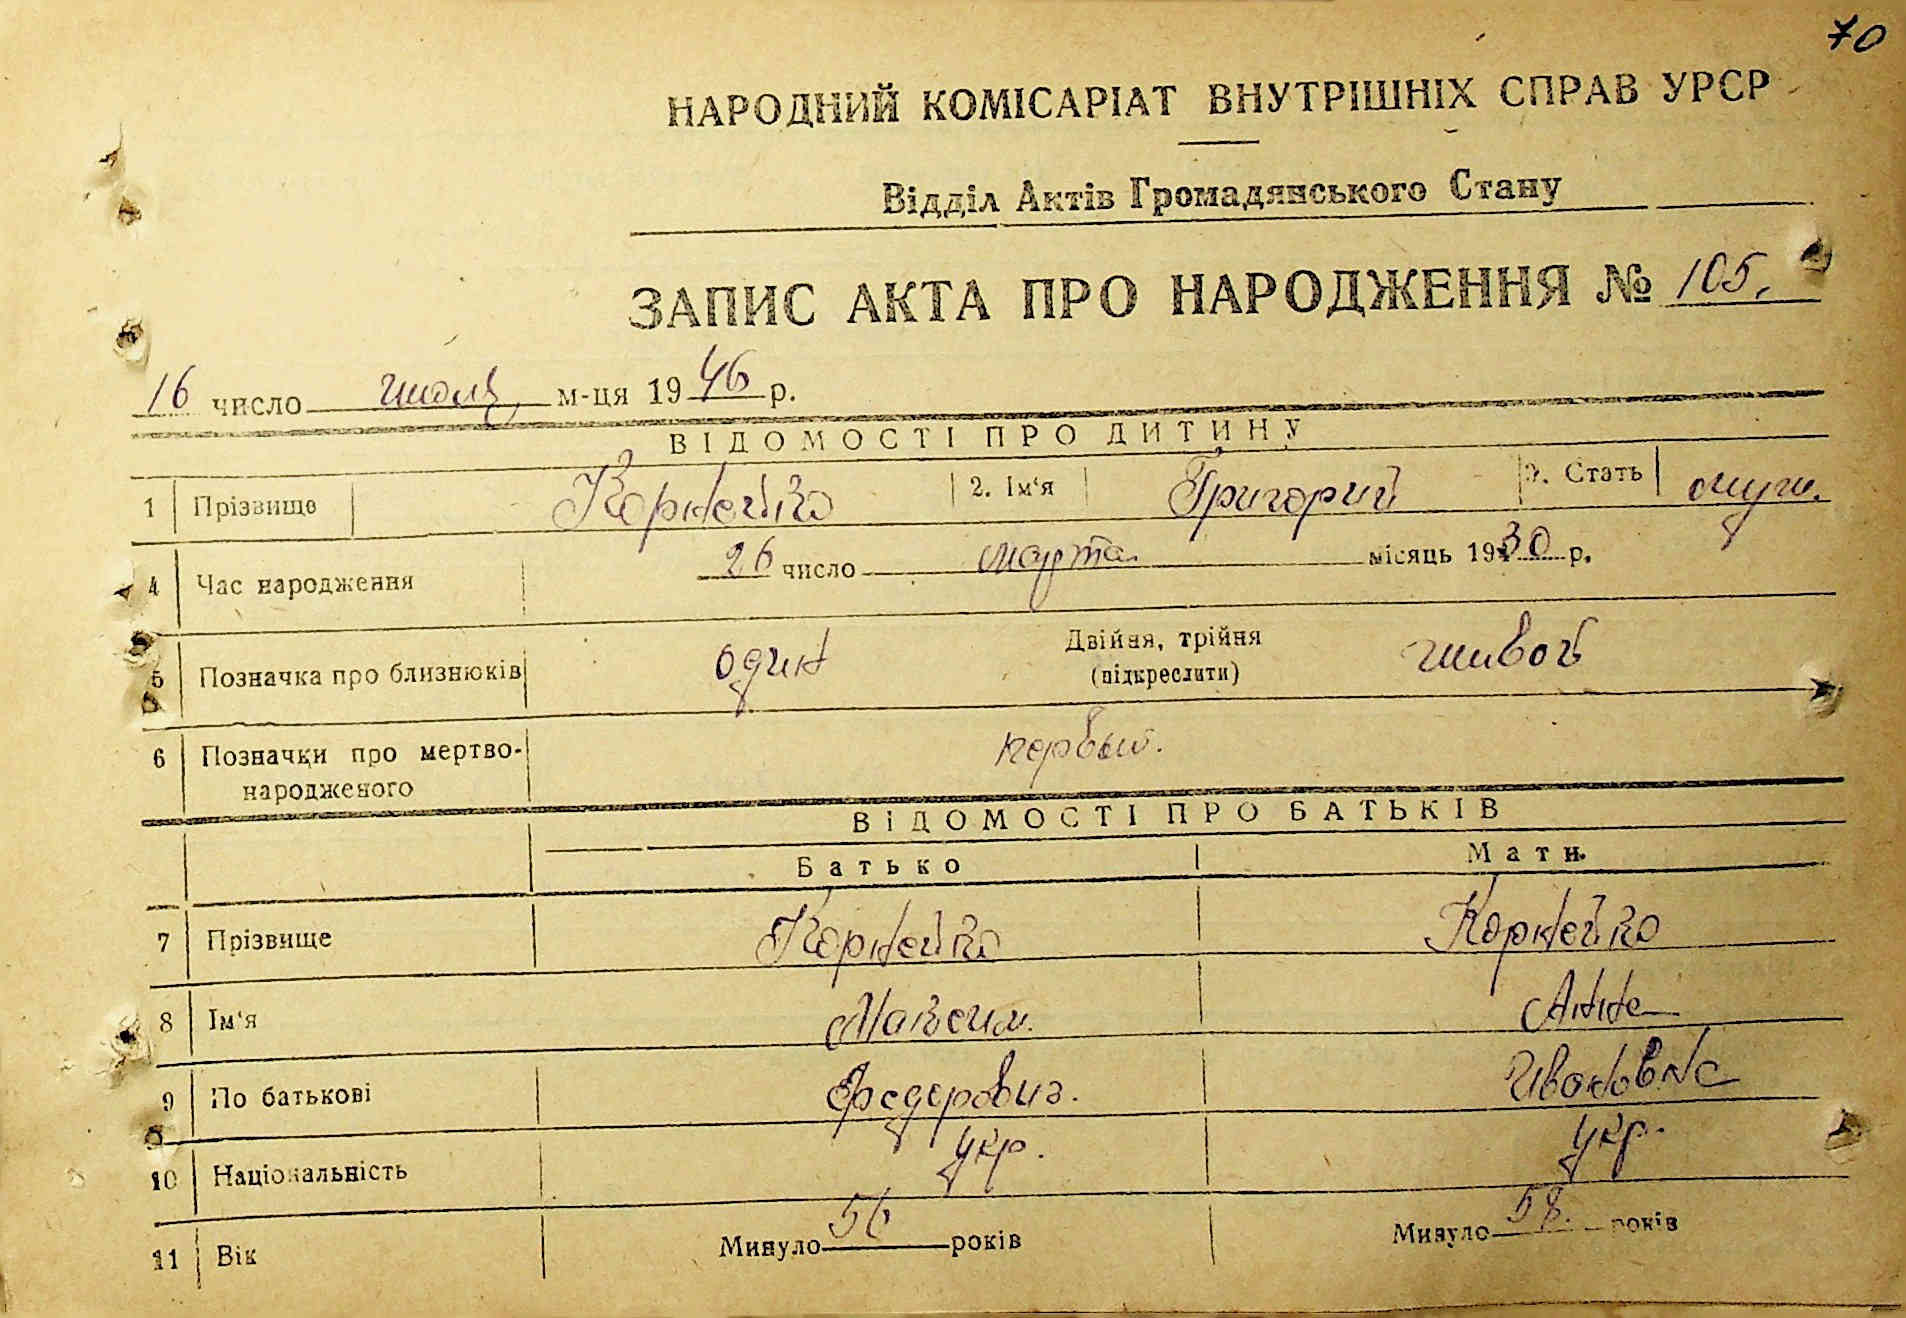 70
НАРОДНИЙ КОМІСАРІАТ ВНУТРІШНІХ СПРАВ УРСР
Відділ Актів Громадянського Стану
ЗАПИС АКТА ПРО НАРОДЖЕННЯ № 105.
16 число июля м-ця 1946 р.
ВІДОМОСТІ ПРО ДИТИНУ
1 Прізвище Корнейко 2. Ім‘я Григорий 3. Стать муж.
4 Час народження 26 число марта місяць 1930 р.
5 Позначка про близнюків один Двійня, трійня (підкреслити) живой
6 Позначки про мертво-
народженого первый.
ВІДОМОСТІ ПРО БАТЬКІВ
Батько Мати
7 Прізвище Корнейко Корнейко
8 Ім‘я Максим. Анна
9 По батькові Федорович. Ивановна
10 Національність укр. укр.
11 Вік Минуло 56 років Минуло 58. років